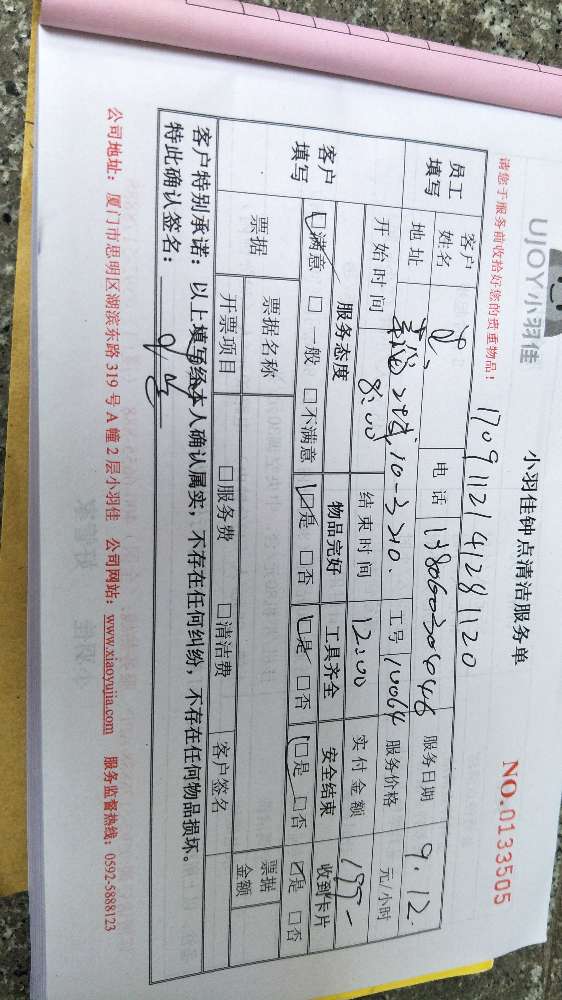 UJOY小羽佳
小羽佳钟点清洁服务单
请您于服务前收拾好您的贵重物品！
NO.0133505
1709112141281120
员工填写
客户姓名
电话 13806030646
服务日期 9.12.
地址
10-3210.
工号 10064
服务价格 元/小时
开始时间 8:00
结束时间 12:00
实付金额
客户填写
服务态度 物品完好 工具齐全 安全结束 收到卡片
☑满意 □一般 □不满意 ☑是 □否 ☑是 □否 ☑是 □否 ☑是 □否
票据 票据名称 票据金额
开票项目 □服务费 □清洁费 客户签名
客户特别承诺：以上填写经本人确认属实，不存在任何纠纷，不存在任何物品损坏。
特此确认签名：
公司地址：厦门市思明区湖滨东路 319 号 A 幢 2 层小羽佳 公司网站：www.xiaoyujia.com 服务监督热线：0592-5888123